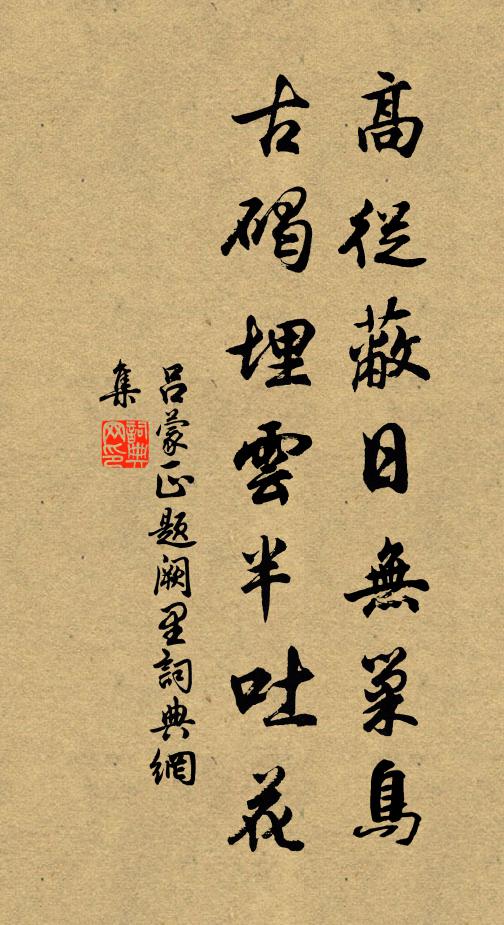 高從蔽日無巢鳥
古碣埋雲半吐花
呂蒙正題闕里詞典網
集
詞典網印